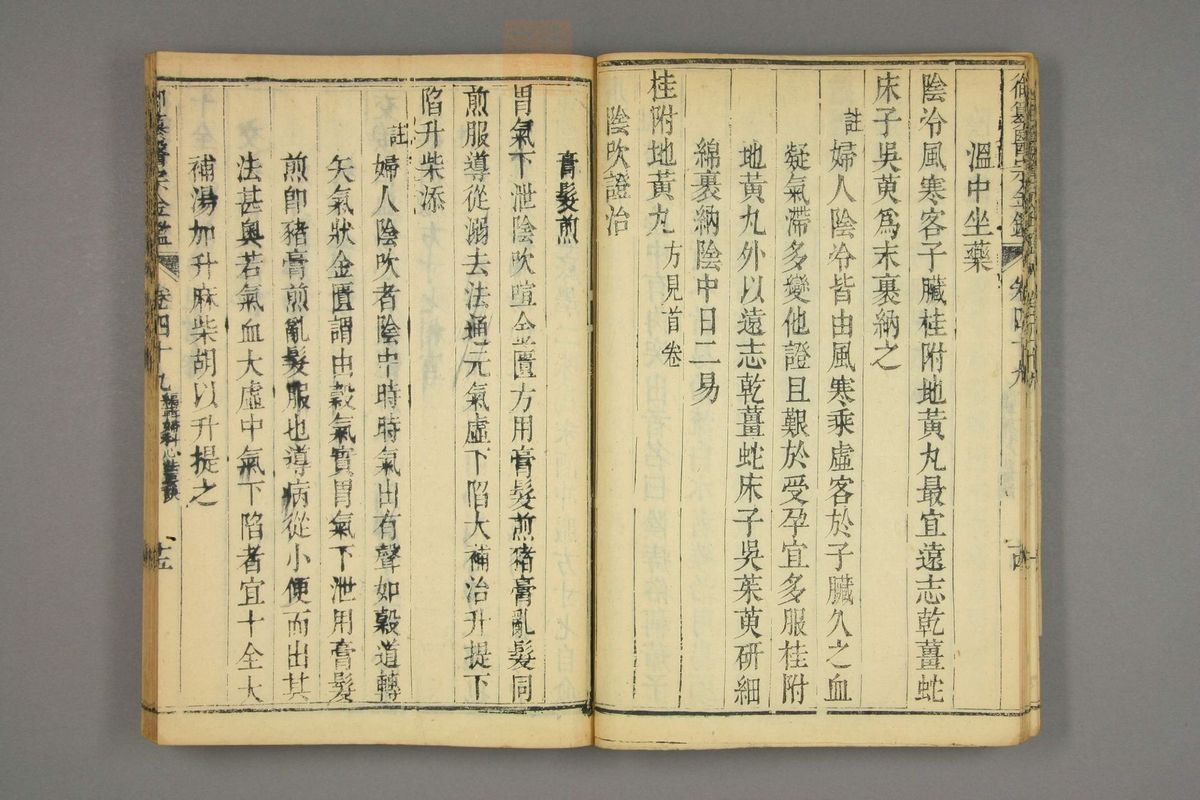 御纂醫宗金鑑 卷四十九 十四
溫中坐藥
陰冷風寒客子臟桂附地黃丸最宜遠志乾薑蛇
床子吳萸爲末裹納之
註 婦人陰冷皆由風寒乘虛客於子臟久之血
凝氣滯多變他證且艱於受孕宜多服桂附
地黃丸外以遠志乾薑蛇床子吳茱萸研細
綿裹納陰中日二易
桂附地黃丸 方見首卷
陰吹證治
膏髮煎
胃氣下泄陰吹喧金匱方用膏髮煎豬膏亂髮同
煎服導從溺去法通元氣虛下陷大補治升提下
陷升柴添
註 婦人陰吹者陰中時時氣出有聲如穀道轉
矢氣狀金匱謂由穀氣實胃氣下泄用膏髮
煎卽豬膏煎亂髮服也導病從小便而出其
法甚奧若氣血大虛中氣下陷者宜十全大
補湯加升麻柴胡以升提之
御纂醫宗金鑑 卷四十九 編輯婦科心法要訣 十五